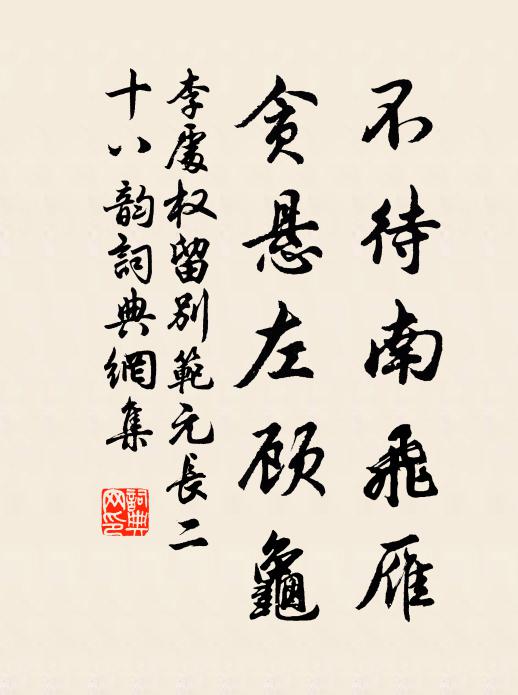 不待南飛雁
貪懸左顾龜
李處权留别範元長二
十八韵詞典網集
詞典网印